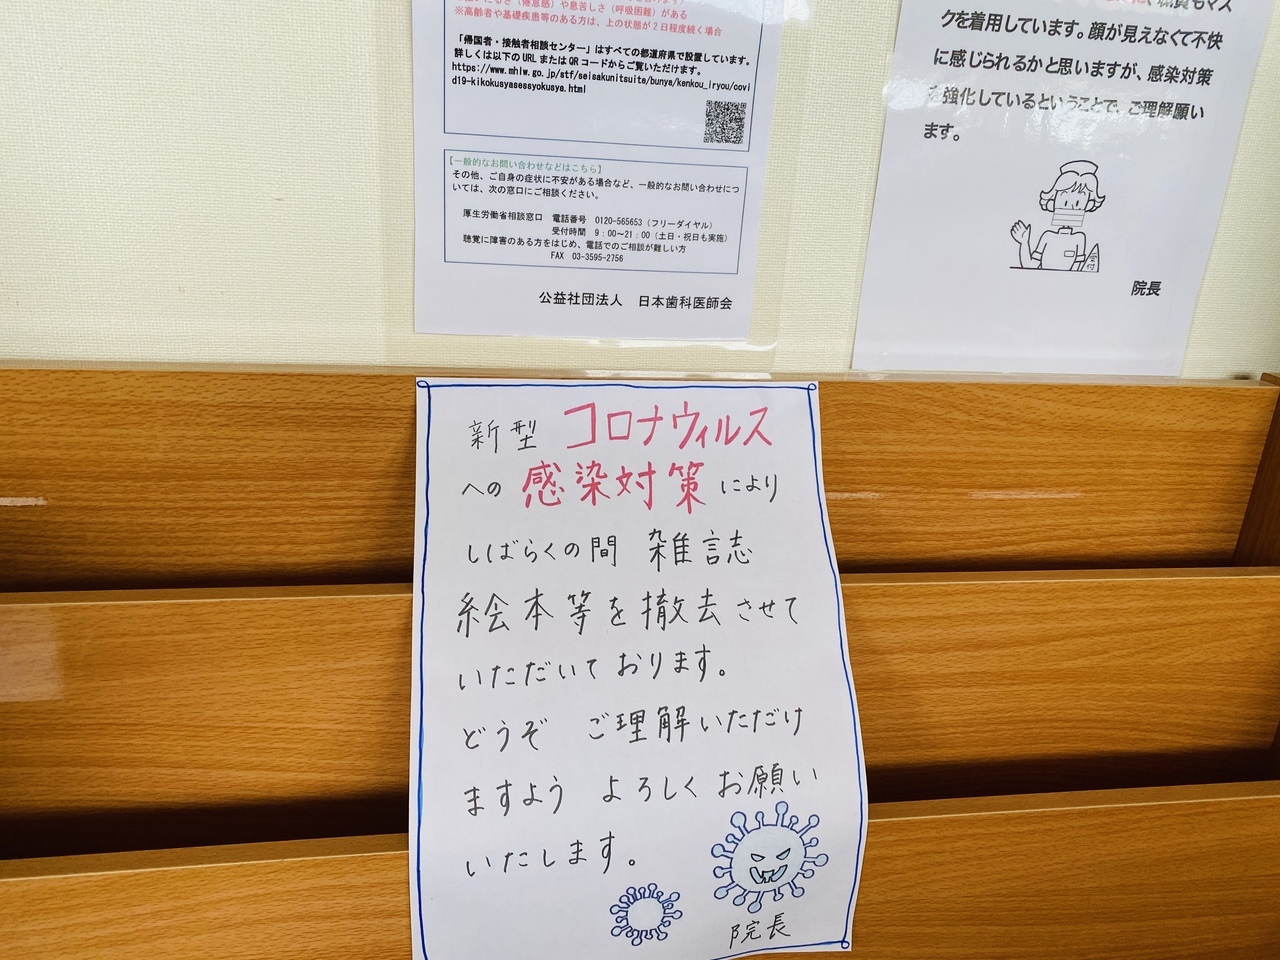 さ（倦怠感）や息苦しさ（呼吸困難）がある
※高齢者や基礎疾患等のある方は、上の状態が2日程度続く場合
「帰国者・接触者相談センター」はすべての都道府県で設置しています。
詳しくは以下のURLまたはQRコードからご覧いただけます。
https://www.mhlw.go.jp/stf/seisakunitsuite/bunya/kenkou_iryou/covi
d19-kikokusyasessyokusya.html
【一般的なお問い合わせなどはこちら】
その他、ご自身の症状に不安がある場合など、一般的なお問い合わせにつ
いては、次の窓口にご相談ください。
厚生労働省相談窓口 電話番号 0120-565653（フリーダイヤル）
受付時間 9：00〜21：00（土日・祝日も実施）
聴覚に障害のある方をはじめ、電話でのご相談が難しい方
FAX 03-3595-2756
公益社団法人 日本歯科医師会
マス
クを着用しています。顔が見えなくて不快
に感じられるかと思いますが、感染対策
を強化しているということで、ご理解願い
ます。
受付
院長
新型 コロナウィルス
への 感染対策 により
しばらくの間 雑誌
絵本等を撤去させて
いただいております。
どうぞ ご理解いただけ
ますよう よろしくお願い
いたします。
院長